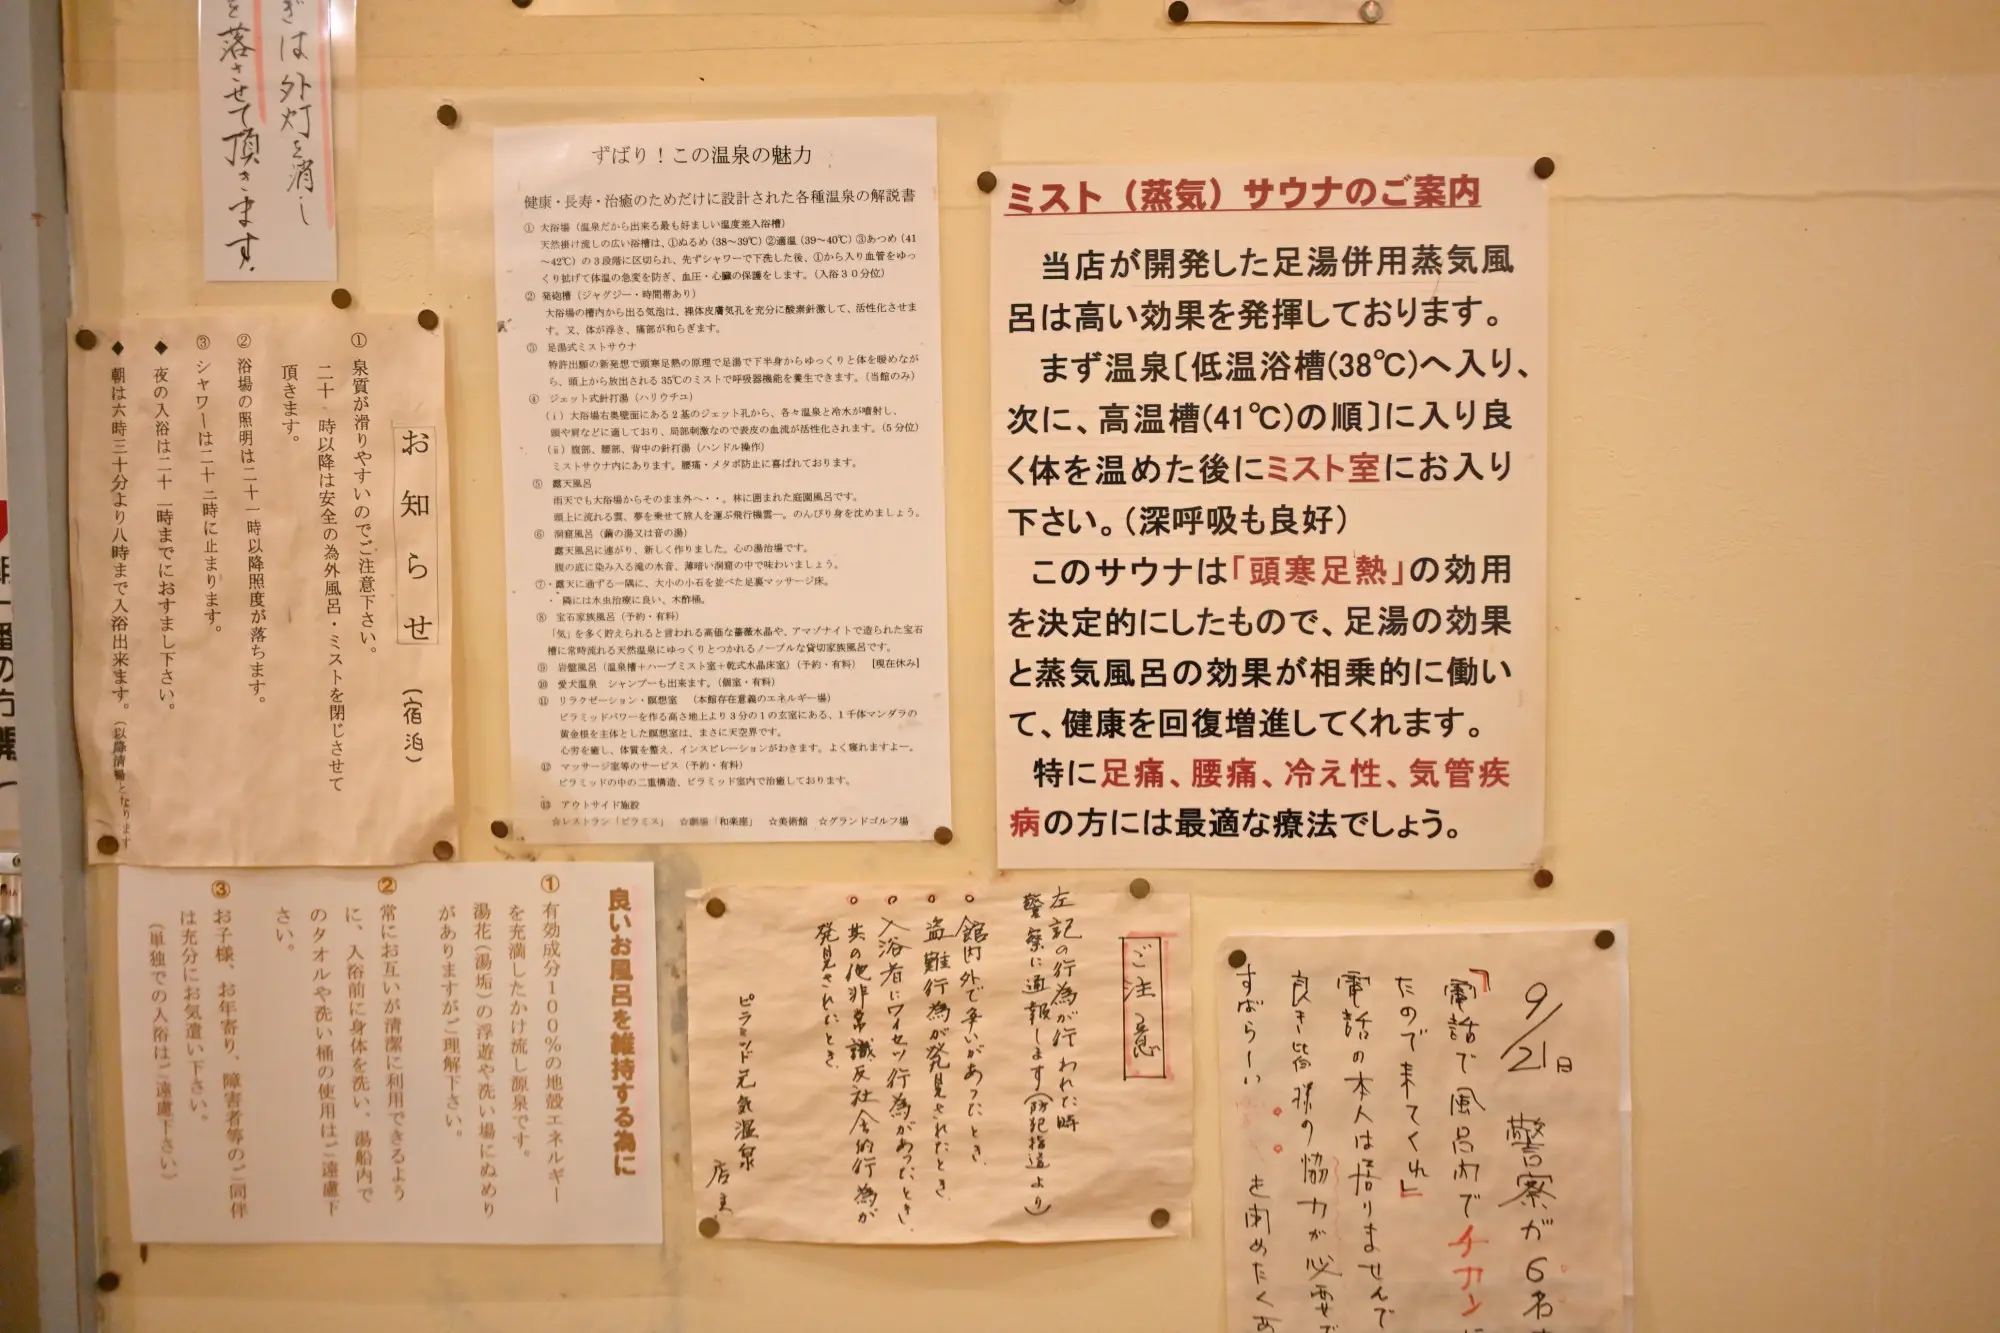 ぎは外灯を消し
を落させて頂きます。
お知らせ(宿泊)
① 泉質が滑りやすいのでご注意下さい。
二十一時以降は安全の為外風呂・ミストを閉じさせて
頂きます。
② 浴場の照明は二十一時以降照度が落ちます。
③ シャワーは二十二時に止まります。
◆ 夜の入浴は二十一時までにおすまし下さい。
◆ 朝は六時三十分より八時まで入浴出来ます。(以降清掃となります
ずばり!この温泉の魅力
健康・長寿・治癒のためだけに設計された各種温泉の解説書
① 大浴場(温泉だから出来る最も好ましい温度差入浴槽)
天然掛け流しの広い浴槽は、①ぬるめ(38~39℃)②適温(39~40℃)③あつめ(41
~42℃)の3段階に区切られ、先ずシャワーで下洗した後、①から入り血管をゆっ
くり拡げて体温の急変を防ぎ、血圧・心臓の保護をします。(入浴30分位)
② 発砲槽(ジャグジー・時間帯あり)
大浴場の槽内から出る気泡は、裸体皮膚気孔を充分に酸素針激して、活性化させま
す。又、体が浮き、痛部が和らぎます。
③ 足湯式ミストサウナ
特許出願の新発想で頭寒足熱の原理で足湯で下半身からゆっくりと体を暖めなが
ら、頭上から放出される35℃のミストで呼吸器機能を養生できます。(当館のみ)
④ ジェット式針打湯(ハリウチユ)
(ⅰ)大浴場右奥壁面にある2基のジェット孔から、各々温泉と冷水が噴射し、
頭や肩などに適しており、局部刺激なので表皮の血流が活性化されます。(5分位)
(ⅱ)腹部、腰部、背中の針打湯(ハンドル操作)
ミストサウナ内にあります。腰痛・メタボ防止に喜ばれております。
⑤ 露天風呂
雨天でも大浴場からそのまま外へ・・。林に囲まれた庭園風呂です。
頭上に流れる雲、夢を乗せて旅人を運ぶ飛行機雲―。のんびり身を沈めましょう。
⑥ 洞窟風呂(繭の湯又は音の湯)
露天風呂に連がり、新しく作りました。心の湯治場です。
腹の底に染み入る滝の水音、薄暗い洞窟の中で味わいましょう。
⑦・露天に通ずる一隅に、大小の小石を並べた足裏マッサージ床。
・隣には水虫治療に良い、木酢桶。
⑧ 宝石家族風呂(予約・有料)
「気」を多く貯えられると言われる高価な薔薇水晶や、アマゾナイトで造られた宝石
槽に常時流れる天然温泉にゆっくりとつかれるノーブルな貸切家族風呂です。
⑨ 岩盤風呂(温泉槽+ハーブミスト室+乾式水晶床室)(予約・有料) [現在休み]
⑩ 愛犬温泉 シャンプーも出来ます。(個室・有料)
⑪ リラクゼーション・瞑想室 (本館存在意義のエネルギー場)
ピラミッドパワーを作る高さ地上より3分の1の玄室にある、1千体マンダラの
黄金根を主体とした瞑想室は、まさに天空界です。
心労を癒し、体質を整え、インスピレーションがわきます。よく寝れますよー。
⑫ マッサージ室等のサービス(予約・有料)
ピラミッドの中の二重構造、ピラミッド室内で治癒しております。
⑬ アウトサイド施設
☆レストラン「ピラミス」 ☆劇場「和楽座」 ☆美術館 ☆グランドゴルフ場
ミスト(蒸気)サウナのご案内
当店が開発した足湯併用蒸気風
呂は高い効果を発揮しております。
まず温泉〔低温浴槽(38℃)へ入り、
次に、高温槽(41℃)の順〕に入り良
く体を温めた後にミスト室にお入り
下さい。(深呼吸も良好)
このサウナは「頭寒足熱」の効用
を決定的にしたもので、足湯の効果
と蒸気風呂の効果が相乗的に働い
て、健康を回復増進してくれます。
特に足痛、腰痛、冷え性、気管疾
病の方には最適な療法でしょう。
良いお風呂を維持する為に
① 有効成分100%の地殻エネルギー
を充満したかけ流し源泉です。
湯花(湯垢)の浮遊や洗い場にぬめり
がありますがご理解下さい。
② 常にお互いが清潔に利用できるよう
に、入浴前に身体を洗い、湯船内で
のタオルや洗い桶の使用はご遠慮下
さい。
③ お子様、お年寄り、障害者等のご同伴
は充分にお気遣い下さい。
(単独での入浴はご遠慮下さい)
ご注意
左記の行為が行われた時
警察に通報します(防犯指導より)
。館内外で争いがあったとき、
。盗難行為が発見されたとき、
。入浴者にワイセツ行為があったとき、
。其の他非常識反社会的行為が
発見されたとき、
ピラミッド元気温泉
店主
9/21日 警察が6名
「電話で風呂内でチカンに
たので来てくれ」
電話の本人は居りませんで
良き皆様の協力が必要で
すばらしい
を閉めたくあ